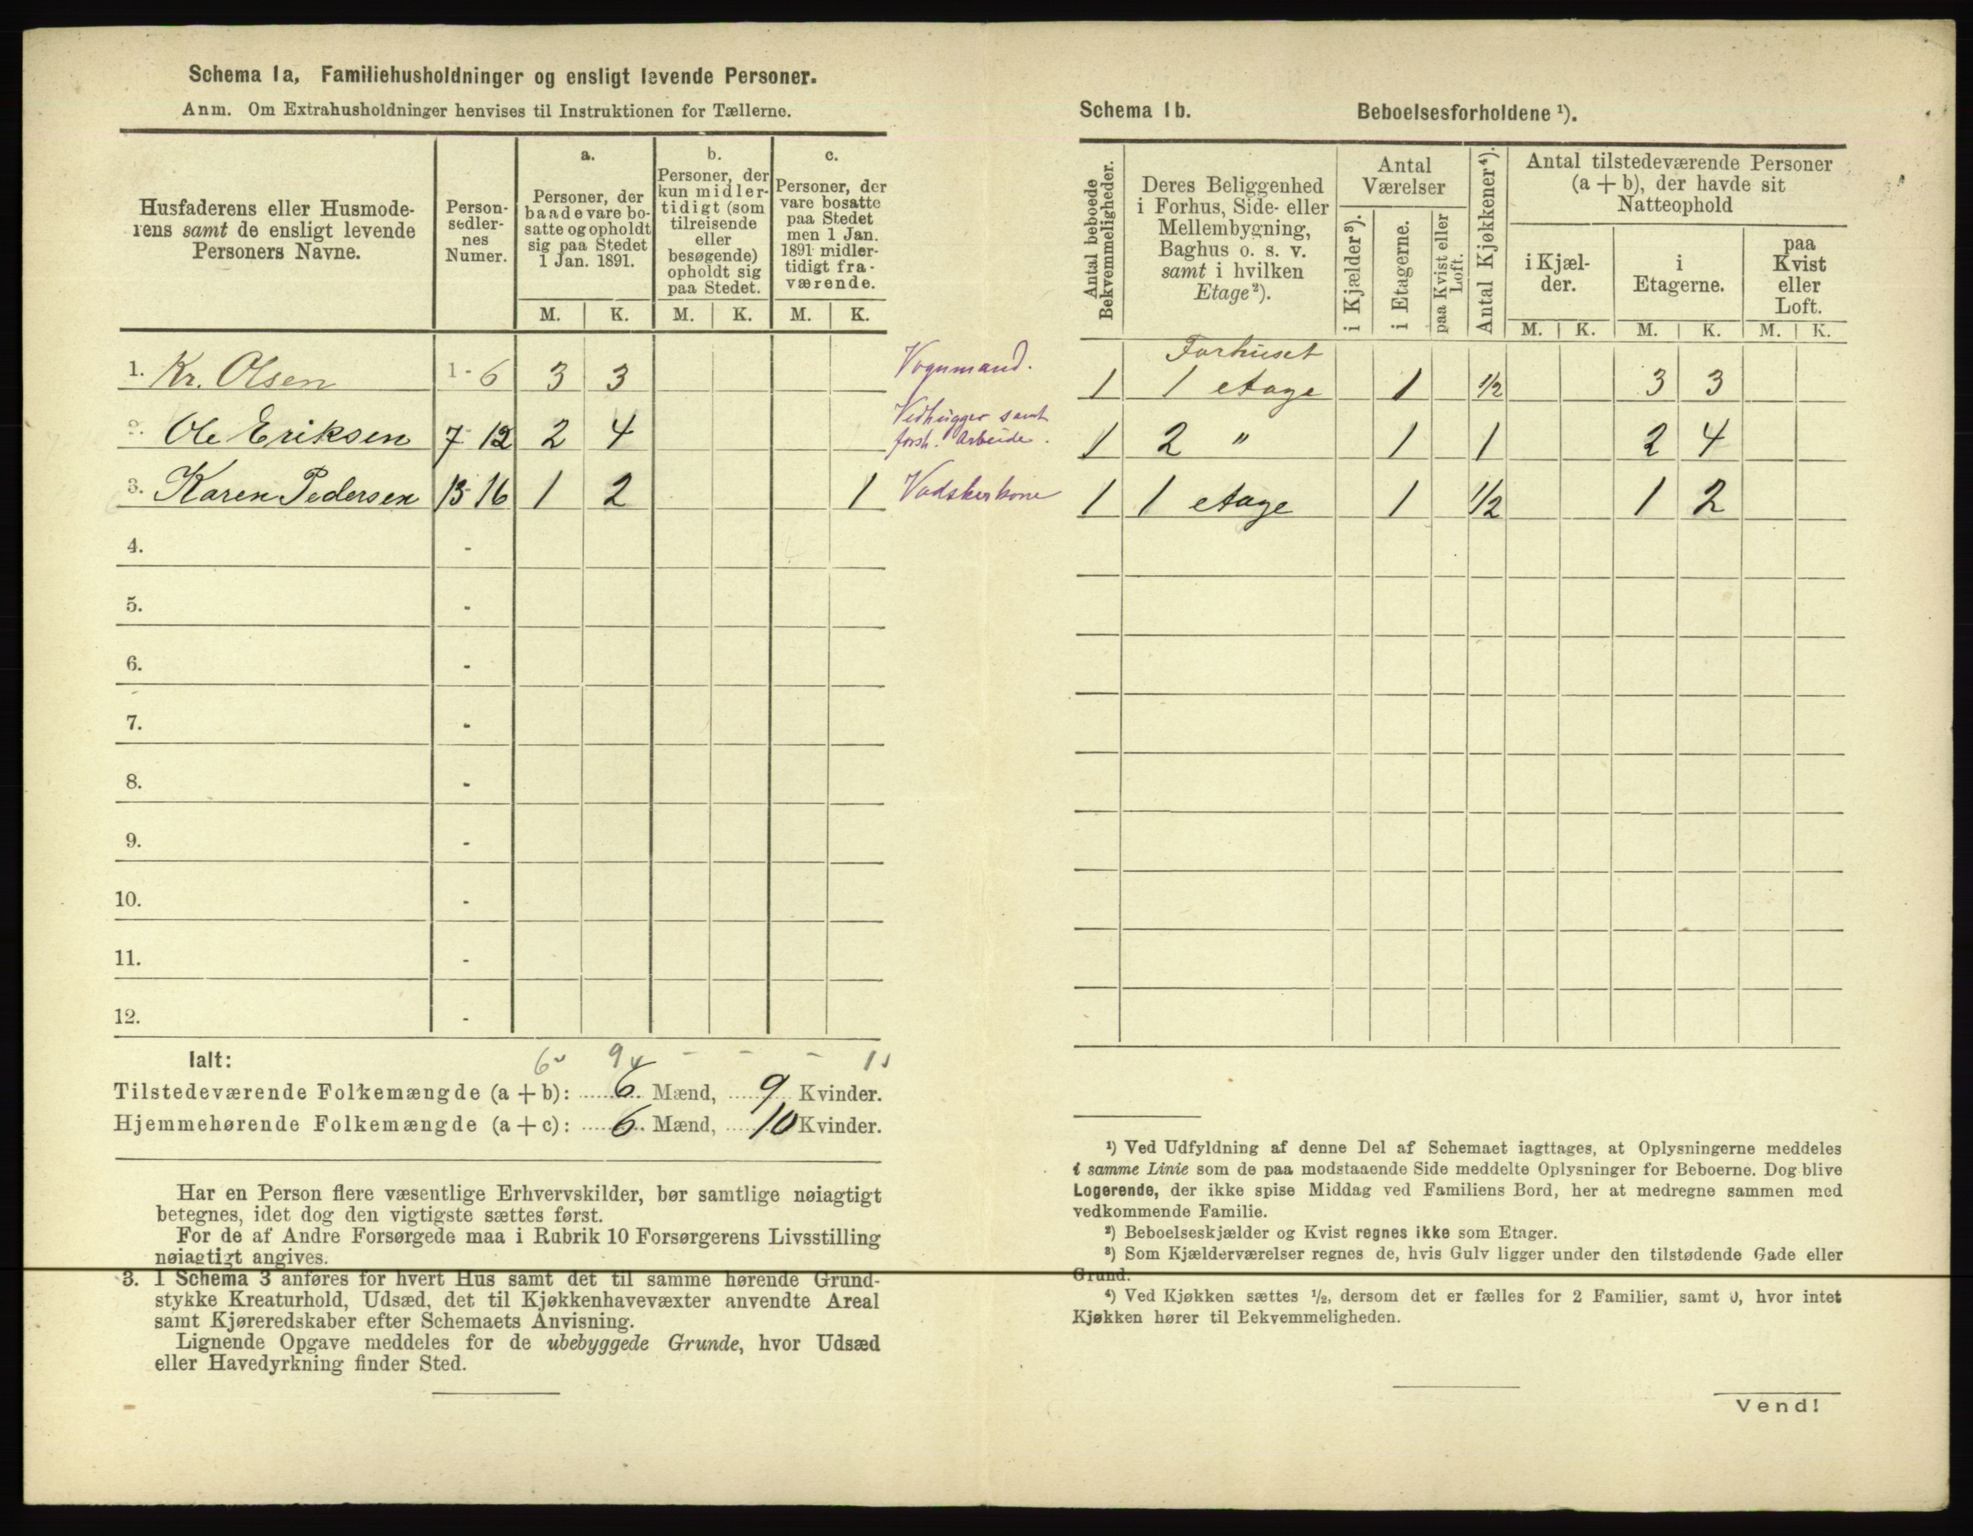 Schema 1a, Familiehusholdninger og ensligt levende Personer.
Anm. Om Extrahusholdninger henvises til Instruktionen for Tællerne.
Husfaderens eller Husmode-
rens samt de ensligt levende
Personers Navne.
Person-
sedler-
nes
Numer.
a.
Personer, der
baade vare bo-
satte og opholdt
sig paa Stedet
1 Jan. 1891.
b.
Personer, der
kun midler-
tidigt (som
tilreisende
eller
besøgende)
opholdt sig
paa Stedet.
c.
Personer, der
vare bosatte
paa Stedet
men 1 Jan.
1891 midler-
tidigt fra-
værende.
M. K. M. K. M. K.
1. Kr. Olsen 1 - 6 3 3 Vognmand.
2. Ole Eriksen 7 - 12 2 4 Vedhugger samt
forsk. Arbeide.
3. Karen Pedersen 13 - 16 1 2 1 Vadskerkone
4. -
5. -
6. -
7. -
8. -
9. -
10. -
11. -
12. -
Ialt: 6 9 - - - 1
Tilstedeværende Folkemængde (a + b): 6 Mænd, 9 Kvinder.
Hjemmehørende Folkemængde (a + c): 6 Mænd, 10 Kvinder.
Har en Person flere væsentlige Erhvervskilder, bør samtlige nøiagtigt
betegnes, idet dog den vigtigste sættes først.
For de af Andre Forsørgede maa i Rubrik 10 Forsørgerens Livsstilling
nøiagtigt angives.
3. I Schema 3 anføres for hvert Hus samt det til samme hørende Grund-
stykke Kreaturhold, Udsæd, det til Kjøkkenhavevæxter anvendte Areal
samt Kjøreredskaber efter Schemaets Anvisning.
Lignende Opgave meddeles for de ubebyggede Grunde, hvor Udsæd
eller Havedyrkning finder Sted.
Schema 1b. Beboelsesforholdene ¹).
Antal beboede
Bekvemmeligheder.
Deres Beliggenhed
i Forhus, Side- eller
Mellembygning,
Baghus o. s. v.
samt i hvilken
Etage²).
Antal
Værelser
i Kjælder³).
i Etagerne.
paa Kvist eller
Loft.
Antal Kjøkkener⁴).
Antal tilstedeværende Personer
(a + b), der havde sit
Natteophold
i Kjæl-
der.
i
Etagerne.
paa
Kvist
eller
Loft.
M. K. M. K. M. K.
Forhuset
1 1 etage 1 1/2 3 3
1 2 " 1 1 2 4
1 1 etage 1 1/2 1 2
¹) Ved Udfyldning af denne Del af Schemaet iagttages, at Oplysningerne meddeles
i samme Linie som de paa modstaaende Side meddelte Oplysninger for Beboerne. Dog blive
Logerende, der ikke spise Middag ved Familiens Bord, her at medregne sammen med
vedkommende Familie.
²) Beboelseskjælder og Kvist regnes ikke som Etager.
³) Som Kjælderværelser regnes de, hvis Gulv ligger under den tilstødende Gade eller
Grund.
⁴) Ved Kjøkken sættes ½, dersom det er fælles for 2 Familier, samt 0, hvor intet
Kjøkken hører til Bekvemmeligheden.
Vend!